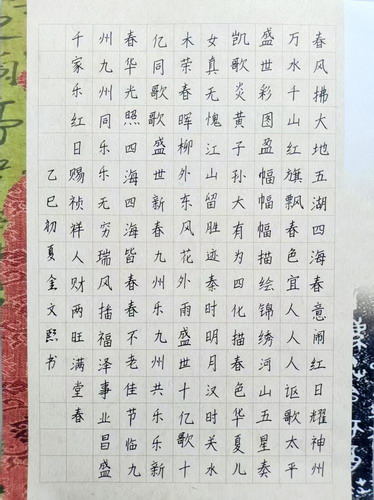 春风拂大地五湖四海春意闹红日耀神州
万水千山红旗飘春色宜人人人讴歌太平
盛世彩图盈幅幅幅描绘锦绣河山五星奏
凯歌炎黄子孙大有为四化描春色华夏儿
女真无愧江山留胜迹秦时明月汉时关水
木荣春晖柳外东风花外雨盛世十亿歌十
亿同歌歌盛世新春九州乐九州共乐乐新
春华光照四海四海皆春春不老佳节临九
州九州同乐乐无穷瑞风播福泽事业昌盛
千家乐红日赐祯祥人财两旺满堂春
乙巳初夏金文熙书